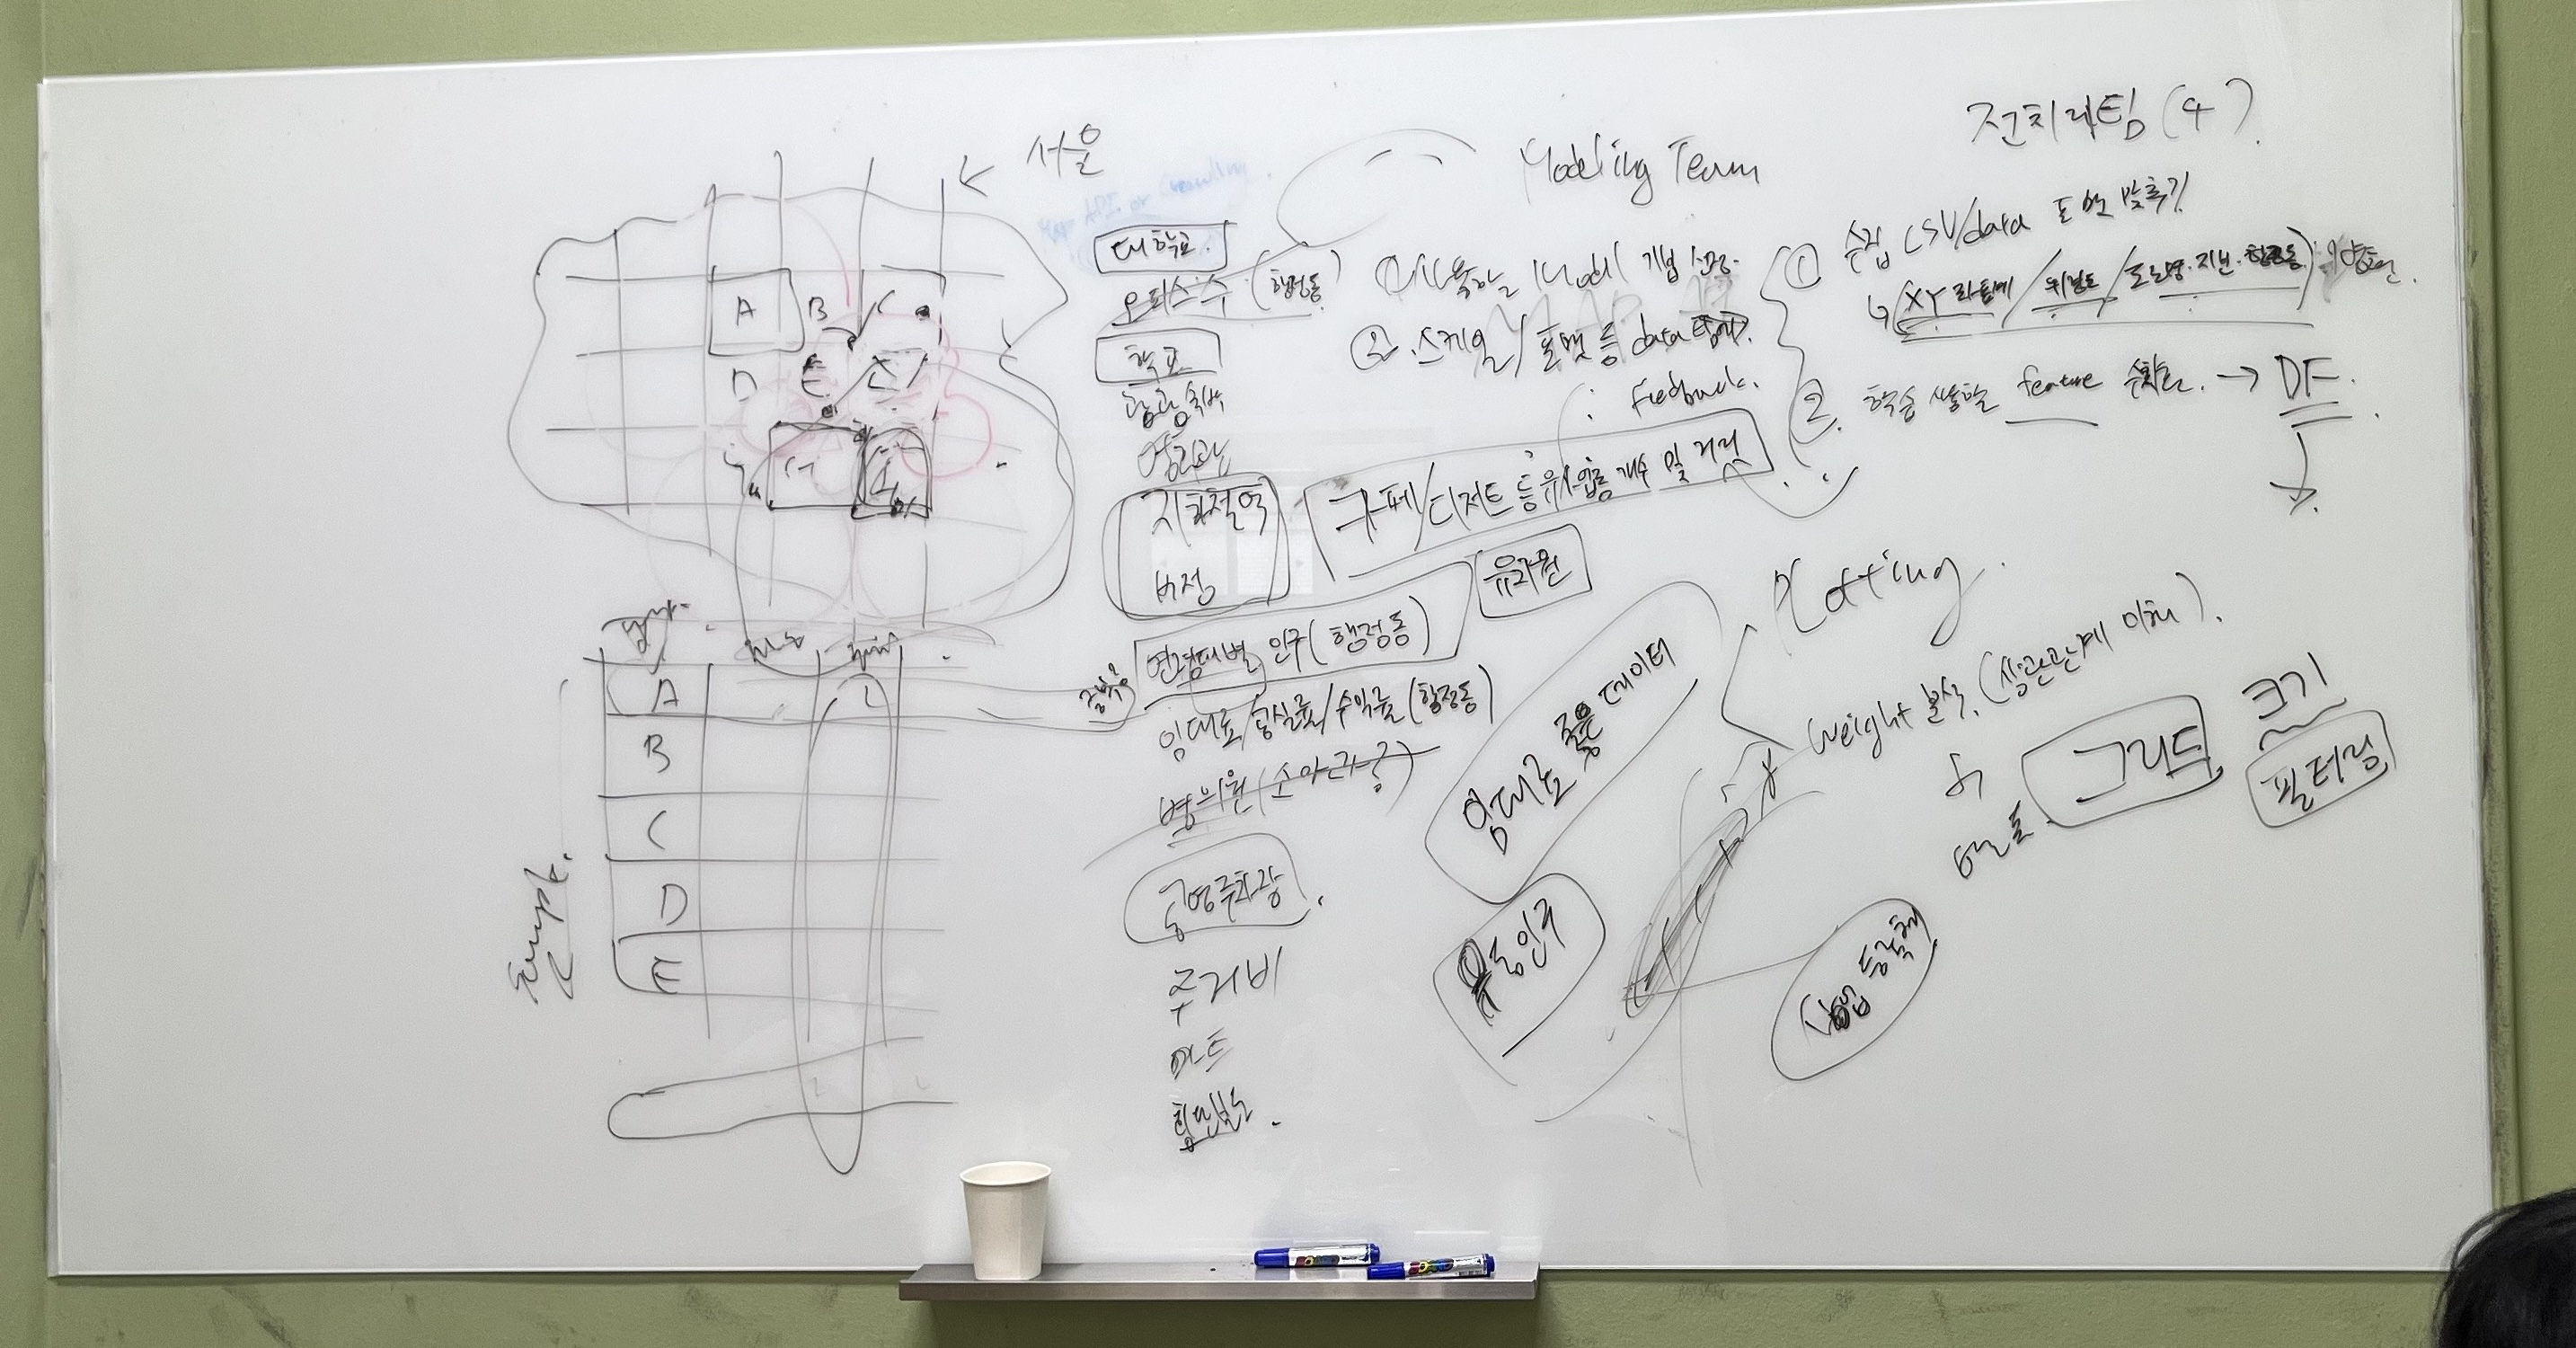 서울
Map API or Crawling.
A B C
D E
G
A
B
C
D
E
Example
대학교.
오피스 수 (행정동)
학교
관광숙박
영화관
지하철역
버정
카페/디저트 등 유사업종 개수 및 거리
유치원
연령대별 인구 (행정동)
임대료/공실률/수익률 (행정동)
병의원 (소아과?)
공영주차장.
주거비
마트
횡단보도.
Modeling Team
① Model 기법 선정.
② 스케일/포맷 등 data
Feedback.
전처리팀 (4)
① 수집 CSV/data 포맷 맞추기
XY 좌표계/위경도/도로명·지번·행정동)
2. 학습 feature → DF.
Plotting.
Weight 분석. (상관관계 이해).
그리드 크기
필터링
임대료 데이터
유동인구